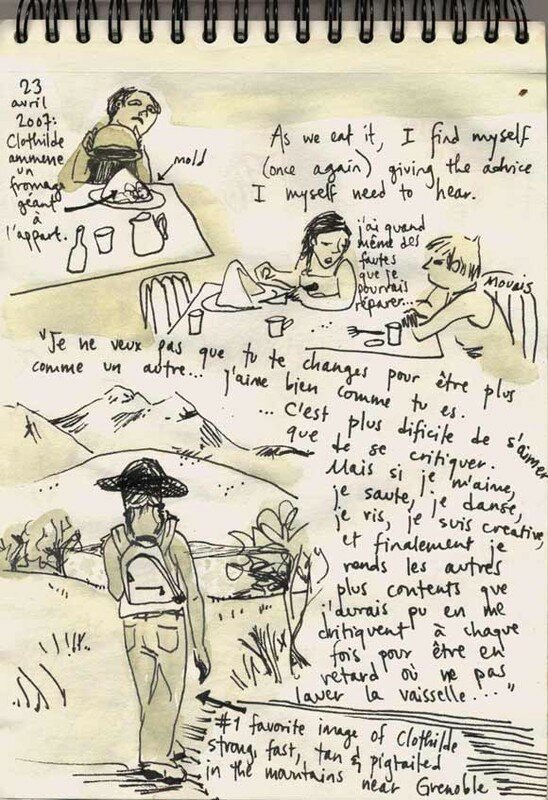 23
avril
2007:
Clothilde
ammene
un
fromage
géant
à
l'appart.
mold
As we eat it, I find myself
(once again) giving the advice
I myself need to hear.
j'ai quand
même des
fautes
que je
pourrais
réparer...
Mouais
"Je ne veux pas que tu te changes pour être plus
comme un autre... j'aime bien comme tu es.
... C'est plus dificile de s'aimer
que de se critiquer.
Mais si je m'aime,
je saute, je danse,
je ris, je suis creative,
et finalement je
rends les autres
plus contents que
j'aurais pu en me
critiquent à chaque
fois pour être en
retard où ne pas
laver la vaisselle..."
#1 favorite image of Clothilde
strong, fast, tan & pigtailed
in the mountains near Grenoble